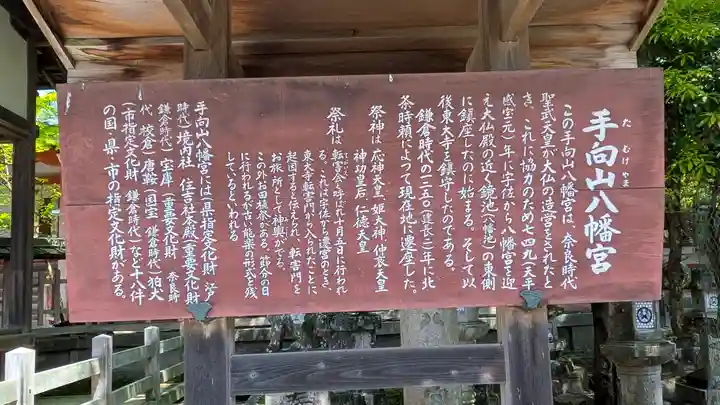 手向山八幡宮
たむけやま
この手向山八幡宮は、奈良時代
聖武天皇が大仏の造営をされたと
き、これに協力のため七四九(天平
感宝元)年に宇佐から八幡宮を迎
え大仏殿の近く鏡池(八幡池)の東側
に鎮座したのに始まる。そして以
後東大寺を鎮守したのである。
鎌倉時代の一二五〇(建長二)年に北
条時頼によって現在地に遷座した。
祭神は 応神天皇 姫大神 仲哀天皇
神功皇后 仁徳天皇
祭礼は 転害会と呼ばれ十月五日に行われ
る。これは宇佐から遷宮のとき、
東大寺転害門から入られたことに
起因すると伝えられ、転害門を
お旅所として神輿がでる。
この外お田植祭がある。節分の日
に行われる古い能楽の形式を残
しているといわれる
手向山八幡宮には(県指定文化財 江戸
時代)境内社 住吉社本殿(重要文化財
鎌倉時代)宝庫(重要文化財 奈良時
代 校倉)唐鞍(国宝 鎌倉時代)狛犬
(市指定文化財 鎌倉時代)など十八件
の国・県・市の指定文化財がある。